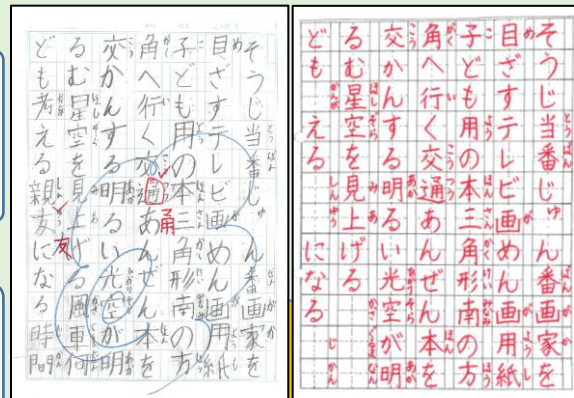 そうじ当番じゅん番画家を
目ざすテレビ画めん画用紙
子ども用の本三角形南の方
角へ行く交通あんぜん本を
交かんする明るい光空が明
るむ星空を見上げる風車何
ども考える親友になる時間
甬
友
そうじ当番じゅん番画家を
目ざすテレビ画めん画用紙
子ども用の本三角形南の方
角へ行く交通あんぜん本を
交かんする明るい光空が明
るむ星空を見上げる
ども える になる